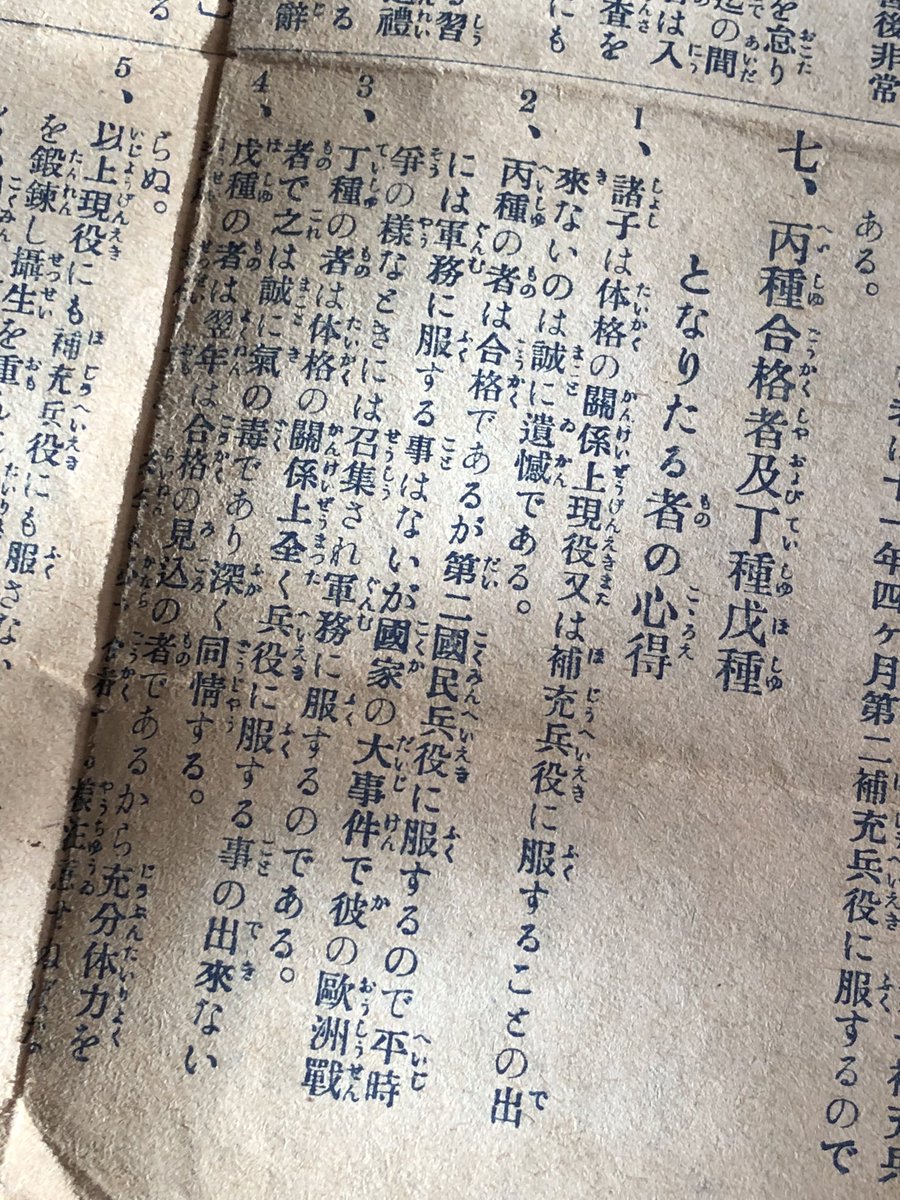 習
禮
辭
後非常
を忘り
迄の間
は入
査を
にも
年四ヶ月第二補充兵役に服するので
ある。
七、丙種合格者及丁種戊種
となりたる者の心得
1、諸子は体格の關係上現役又は補充兵役に服することの出
來ないのは誠に遺憾である。
2、丙種の者は合格であるが第二國民兵役に服するので平時
には軍務に服する事はないが國家の大事件で彼の歐洲戰
爭の樣なときには召集され軍務に服するのである。
3、丁種の者は体格の關係上全く兵役に服する事の出來ない
者で之は誠に氣の毒であり深く同情する。
4、戊種の者は翌年は合格の見込の者であるから充分体力を
らぬ。
5、以上現役にも補充兵役にも服さない
を鍛鍊し攝生を重